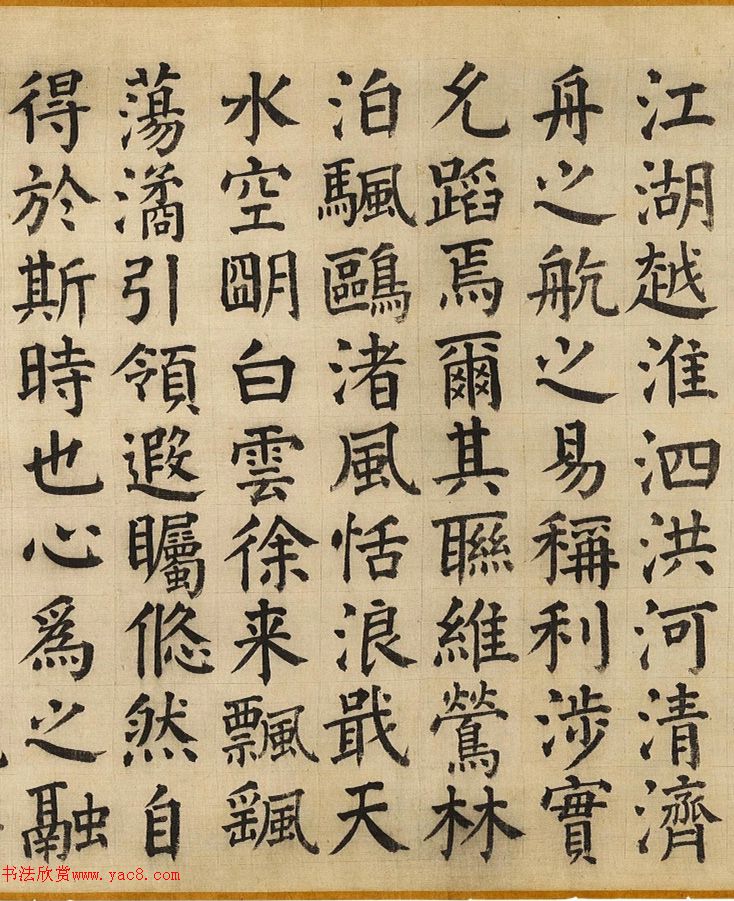 江湖越淮泗洪河清濟
舟之航之易稱利涉實
允蹈焉爾其聯維鶯林
泊颿鷗渚風恬浪戢天
水空朙白雲徐来飄颻
蕩潏引領遐矚悠然自
得於斯時也心爲之融
书法欣赏www.yac8.com